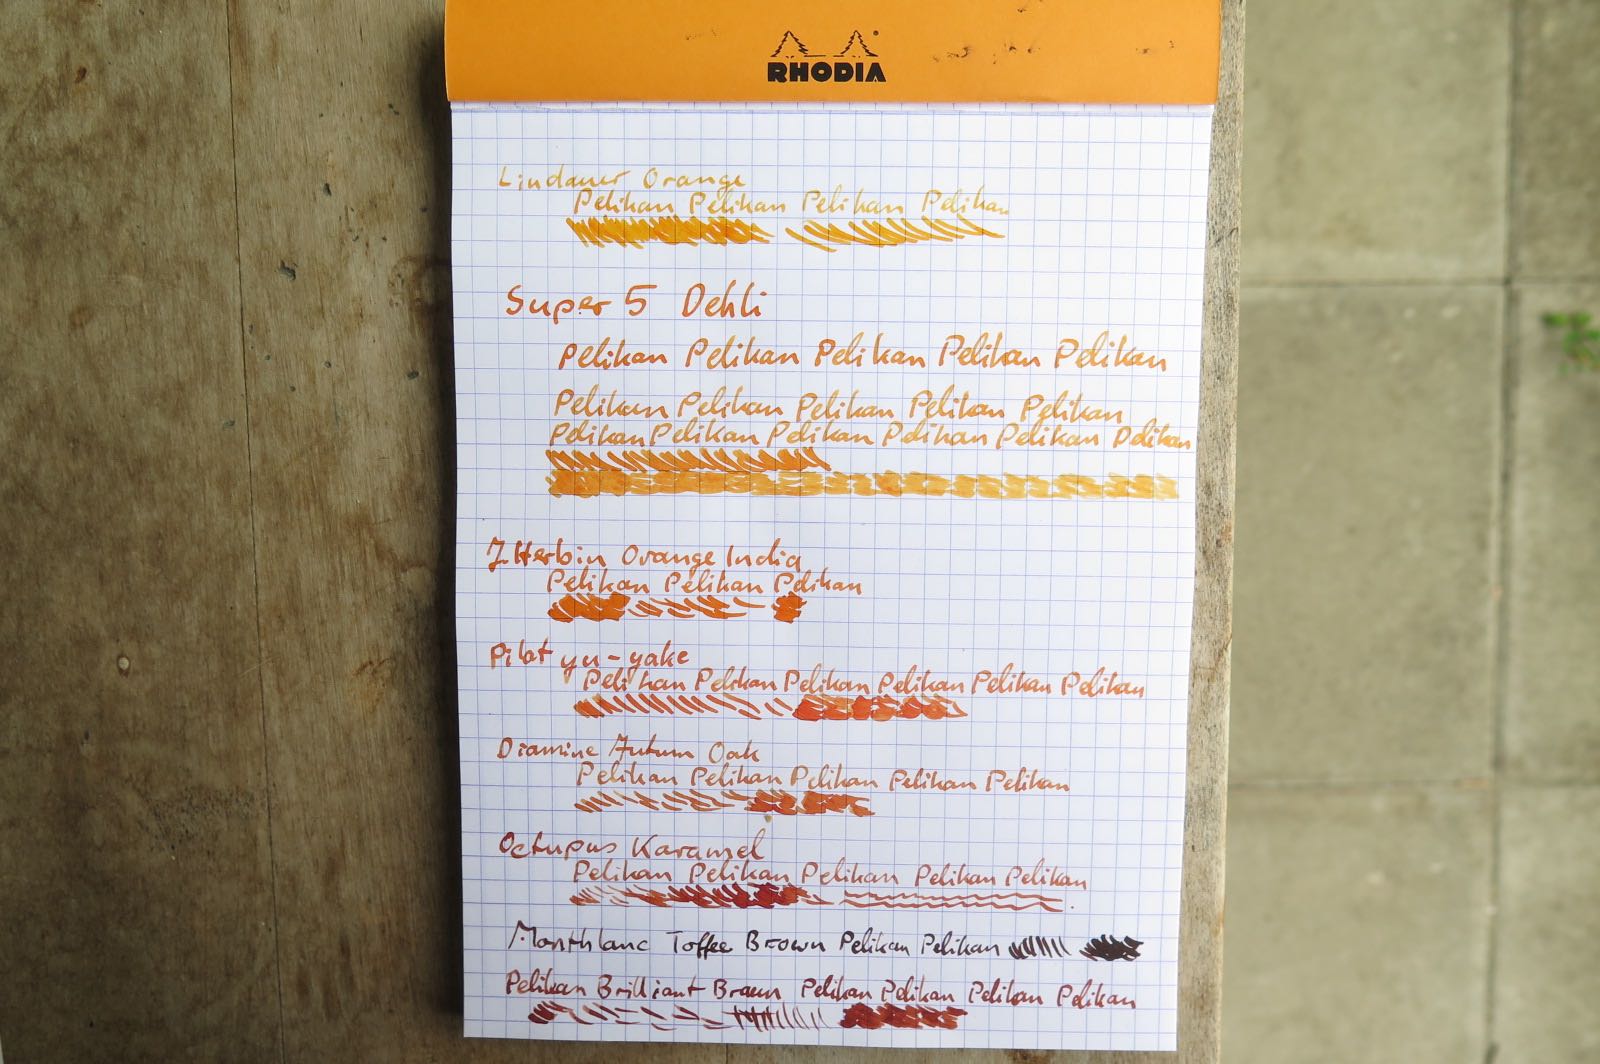 RHODIA
Lindauer Orange
Pelikan Pelikan Pelikan Pelikan
Super 5 Dehli
Pelikan Pelikan Pelikan Pelikan Pelikan
Pelikan Pelikan Pelikan Pelikan Pelikan
Pelikan Pelikan Pelikan Pelikan Pelikan Pelikan
J. Herbin Orange India
Pelikan Pelikan Pelikan
Pilot yu-yake
Pelikan Pelikan Pelikan Pelikan Pelikan Pelikan
Diamine Autum Oak
Pelikan Pelikan Pelikan Pelikan Pelikan
Octupus Karamel
Pelikan Pelikan Pelikan Pelikan Pelikan
Montblanc Toffee Brown Pelikan Pelikan
Pelikan Brilliant Braun Pelikan Pelikan Pelikan Pelikan